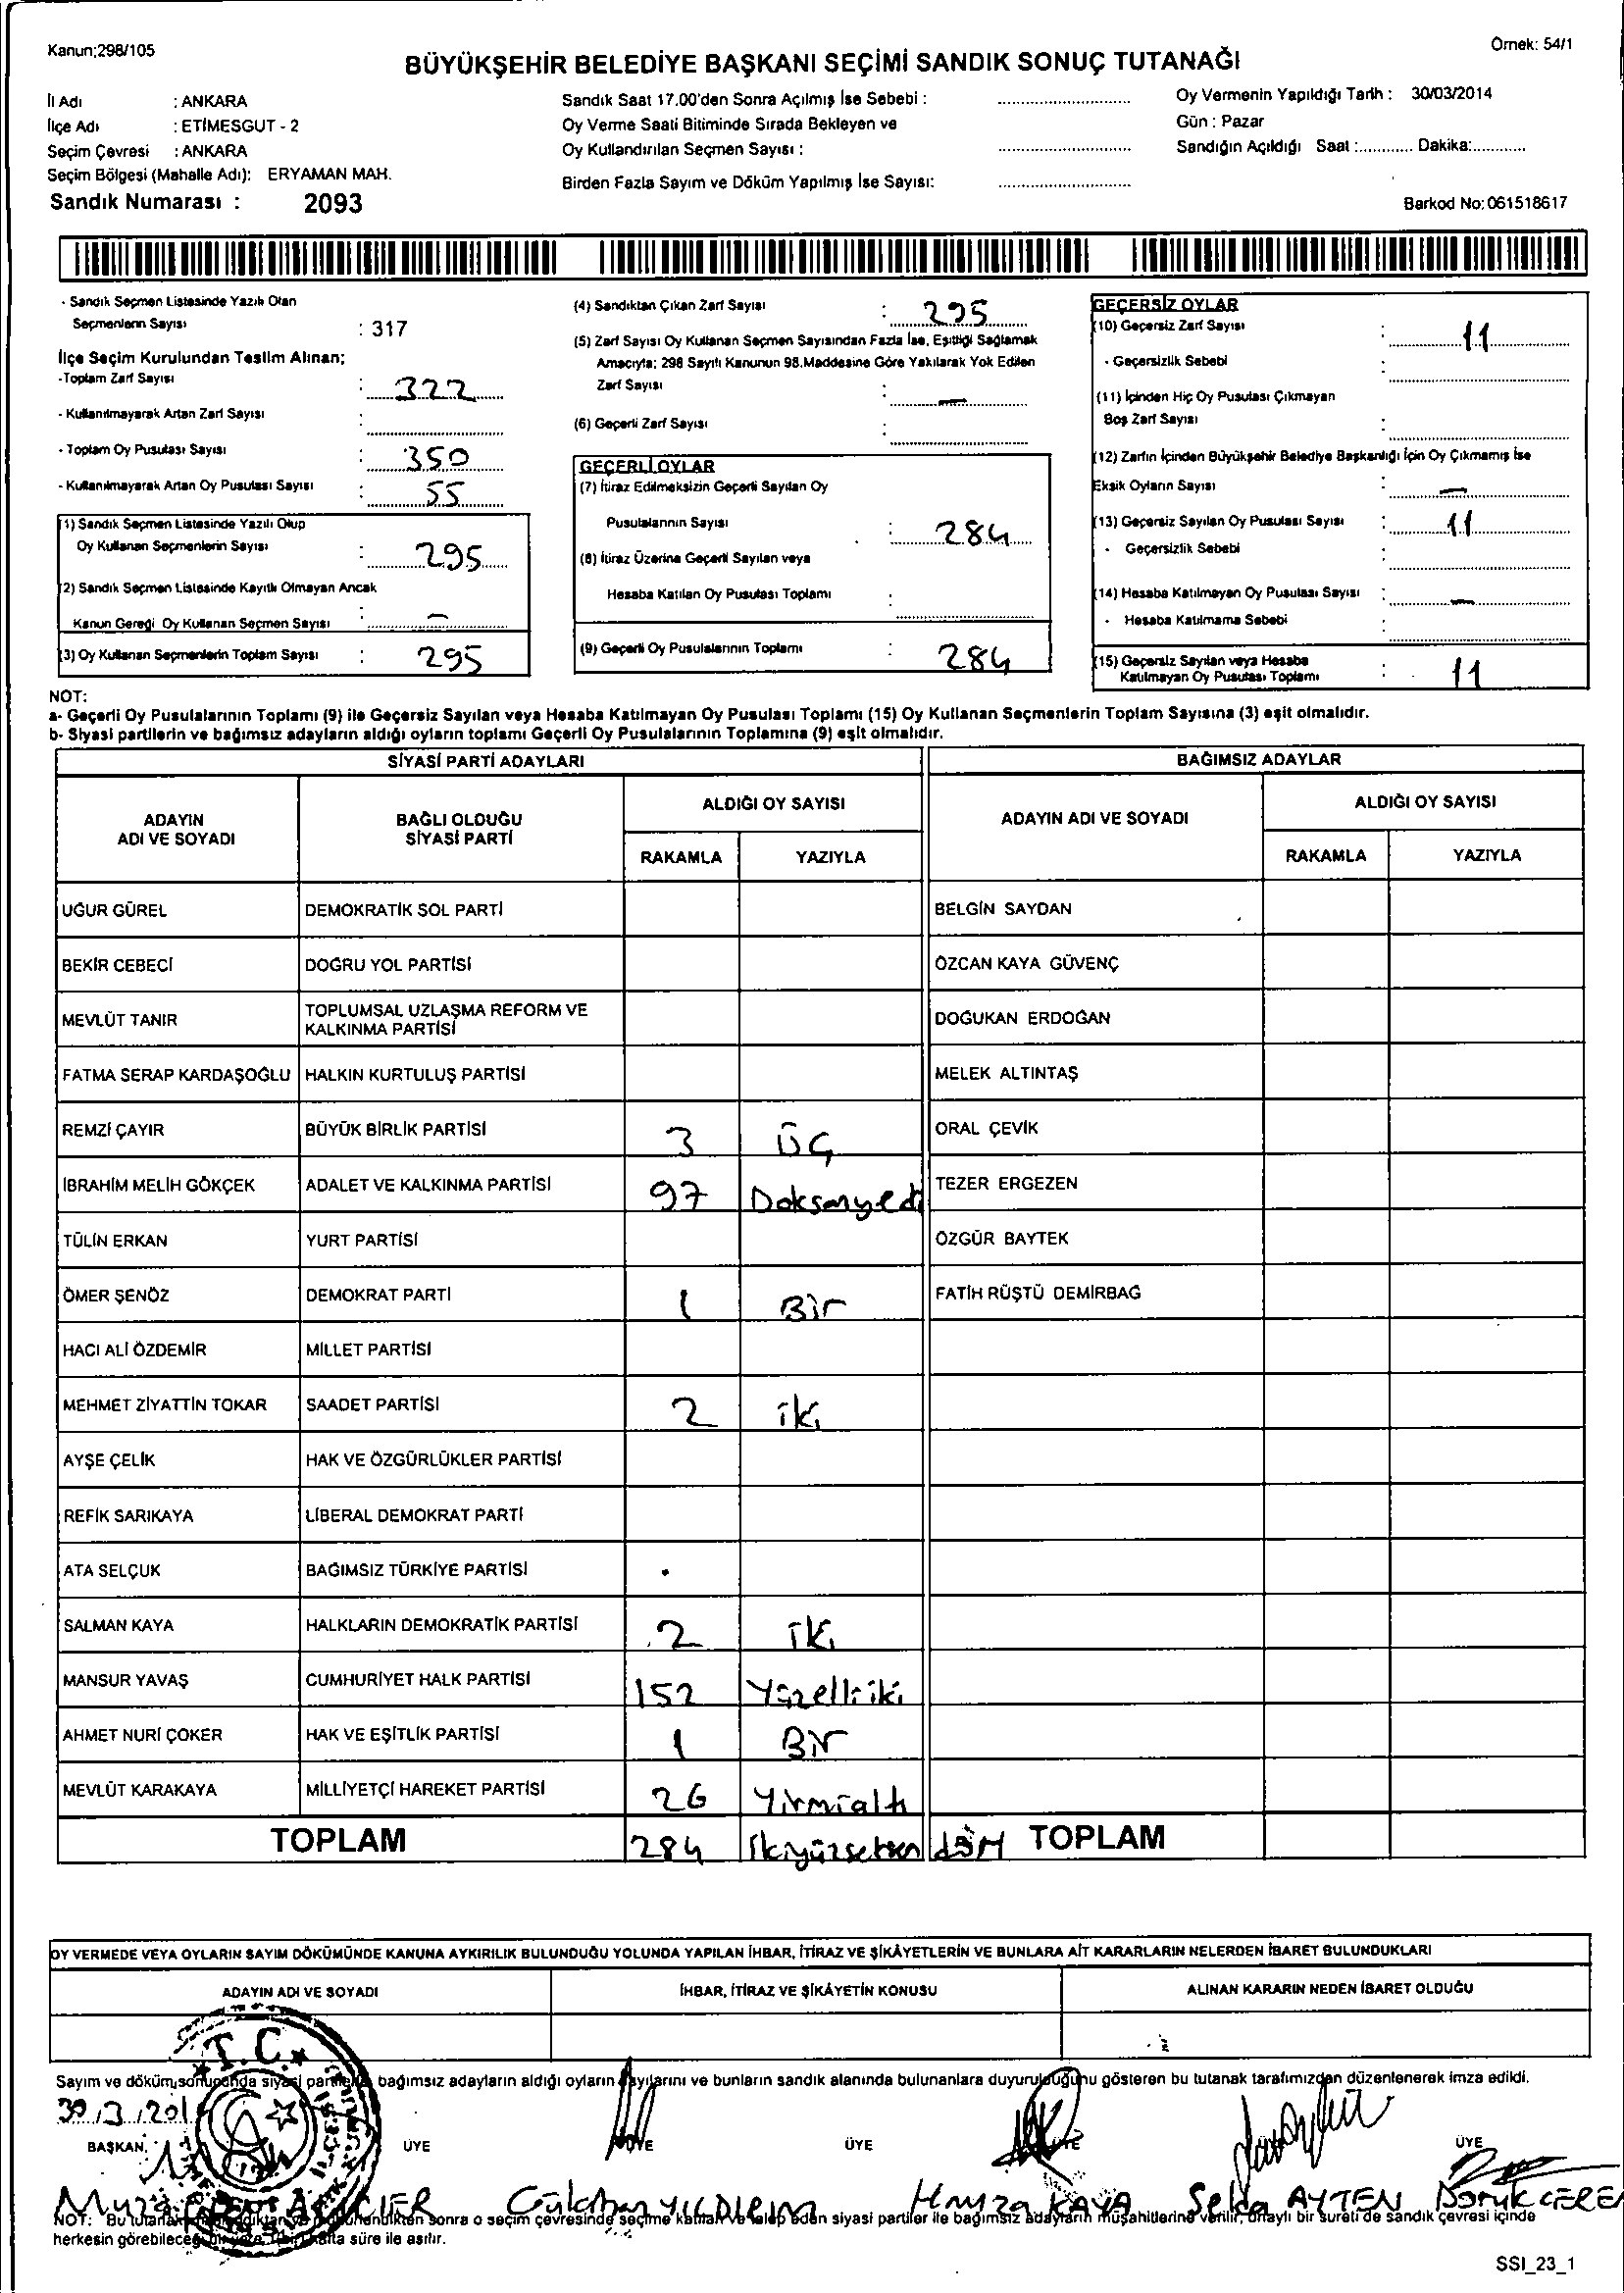 Kanun;298/105
Örnek: 54/1
BÜYÜKŞEHİR BELEDİYE BAŞKANI SEÇİMİ SANDIK SONUÇ TUTANAĞI
İl Adı : ANKARA
İlçe Adı : ETİMESGUT - 2
Seçim Çevresi : ANKARA
Seçim Bölgesi (Mahalle Adı): ERYAMAN MAH.
Sandık Numarası : 2093
Sandık Saat 17.00'den Sonra Açılmış İse Sebebi :
Oy Verme Saati Bitiminde Sırada Bekleyen ve
Oy Kullandırılan Seçmen Sayısı :
Birden Fazla Sayım ve Döküm Yapılmış İse Sayısı:
Oy Vermenin Yapıldığı Tarih : 30/03/2014
Gün : Pazar
Sandığın Açıldığı Saat :............ Dakika:............
Barkod No:061518617
- Sandık Seçmen Listesinde Yazılı Olan
Seçmenlerin Sayısı : 317
İlçe Seçim Kurulundan Teslim Alınan;
-Toplam Zarf Sayısı : 322
- Kullanılmayarak Artan Zarf Sayısı :
- Toplam Oy Pusulası Sayısı : 350
- Kullanılmayarak Artan Oy Pusulası Sayısı : 55
(1) Sandık Seçmen Listesinde Yazılı Olup
Oy Kullanan Seçmenlerin Sayısı : 295
(2) Sandık Seçmen Listesinde Kayıtlı Olmayan Ancak
Kanun Gereği Oy Kullanan Seçmen Sayısı : –
(3) Oy Kullanan Seçmenlerin Toplam Sayısı : 295
(4) Sandıktan Çıkan Zarf Sayısı : 295
(5) Zarf Sayısı Oy Kullanan Seçmen Sayısından Fazla İse, Eşitliği Sağlamak
Amacıyla; 298 Sayılı Kanunun 98.Maddesine Göre Yakılarak Yok Edilen
Zarf Sayısı : –
(6) Geçerli Zarf Sayısı :
GEÇERLİ OYLAR
(7) İtiraz Edilmeksizin Geçerli Sayılan Oy
Pusulalarının Sayısı : 284
(8) İtiraz Üzerine Geçerli Sayılan veya
Hesaba Katılan Oy Pusulası Toplamı :
(9) Geçerli Oy Pusulalarının Toplamı : 284
GEÇERSİZ OYLAR
(10) Geçersiz Zarf Sayısı : 11
- Geçersizlik Sebebi :
(11) İçinden Hiç Oy Pusulası Çıkmayan
Boş Zarf Sayısı :
(12) Zarfın İçinden Büyükşehir Belediye Başkanlığı İçin Oy Çıkmamış İse
Eksik Oyların Sayısı : –
(13) Geçersiz Sayılan Oy Pusulası Sayısı : 11
- Geçersizlik Sebebi :
(14) Hesaba Katılmayan Oy Pusulası Sayısı : –
- Hesaba Katılmama Sebebi :
(15) Geçersiz Sayılan veya Hesaba
Katılmayan Oy Pusulası Toplamı : 11
NOT:
a- Geçerli Oy Pusulalarının Toplamı (9) ile Geçersiz Sayılan veya Hesaba Katılmayan Oy Pusulası Toplamı (15) Oy Kullanan Seçmenlerin Toplam Sayısına (3) eşit olmalıdır.
b- Siyasi partilerin ve bağımsız adayların aldığı oyların toplamı Geçerli Oy Pusulalarının Toplamına (9) eşit olmalıdır.
SİYASİ PARTİ ADAYLARI
BAĞIMSIZ ADAYLAR
ADAYIN ADI VE SOYADI
BAĞLI OLDUĞU SİYASİ PARTİ
ALDIĞI OY SAYISI
RAKAMLA YAZIYLA
ADAYIN ADI VE SOYADI
ALDIĞI OY SAYISI
RAKAMLA YAZIYLA
UĞUR GÜREL DEMOKRATİK SOL PARTİ BELGİN SAYDAN
BEKİR CEBECİ DOĞRU YOL PARTİSİ ÖZCAN KAYA GÜVENÇ
MEVLÜT TANIR TOPLUMSAL UZLAŞMA REFORM VE KALKINMA PARTİSİ DOĞUKAN ERDOĞAN
FATMA SERAP KARDAŞOĞLU HALKIN KURTULUŞ PARTİSİ MELEK ALTINTAŞ
REMZİ ÇAYIR BÜYÜK BİRLİK PARTİSİ 3 ÜÇ ORAL ÇEVİK
İBRAHİM MELİH GÖKÇEK ADALET VE KALKINMA PARTİSİ 97 Doksanyedi TEZER ERGEZEN
TÜLİN ERKAN YURT PARTİSİ ÖZGÜR BAYTEK
ÖMER ŞENÖZ DEMOKRAT PARTİ 1 Bir FATİH RÜŞTÜ DEMİRBAĞ
HACI ALİ ÖZDEMİR MİLLET PARTİSİ
MEHMET ZİYATTİN TOKAR SAADET PARTİSİ 2 iki
AYŞE ÇELİK HAK VE ÖZGÜRLÜKLER PARTİSİ
REFİK SARIKAYA LİBERAL DEMOKRAT PARTİ
ATA SELÇUK BAĞIMSIZ TÜRKİYE PARTİSİ
SALMAN KAYA HALKLARIN DEMOKRATİK PARTİSİ 2 İki
MANSUR YAVAŞ CUMHURİYET HALK PARTİSİ 152 Yüzelliiki
AHMET NURİ ÇOKER HAK VE EŞİTLİK PARTİSİ 1 Bir
MEVLÜT KARAKAYA MİLLİYETÇİ HAREKET PARTİSİ 26 Yirmialtı
TOPLAM 284 İkiyüzseksendört TOPLAM
OY VERMEDE VEYA OYLARIN SAYIM DÖKÜMÜNDE KANUNA AYKIRILIK BULUNDUĞU YOLUNDA YAPILAN İHBAR, İTİRAZ VE ŞİKÂYETLERİN VE BUNLARA AİT KARARLARIN NELERDEN İBARET BULUNDUKLARI
ADAYIN ADI VE SOYADI İHBAR, İTİRAZ VE ŞİKÂYETİN KONUSU ALINAN KARARIN NEDEN İBARET OLDUĞU
T.C.
Sayım ve döküm sonucunda siyasi parti bağımsız adayların aldığı oyların sayılarını ve bunların sandık alanında bulunanlara duyurulduğunu gösteren bu tutanak tarafımızdan düzenlenerek imza edildi.
30/3/201
BAŞKAN ÜYE ÜYE ÜYE ÜYE ÜYE
Gülcihan YILDIRIM Hamza KAYA Selda AYTEN
NOT: Bu tutanak sonra o seçim çevresinde seçime katılan ve talep eden siyasi partiler ile bağımsız adayların müşahitlerine verilir, onaylı bir sureti de sandık çevresi içinde
herkesin görebileceği hafta süre ile asılır.
SSI_23_1